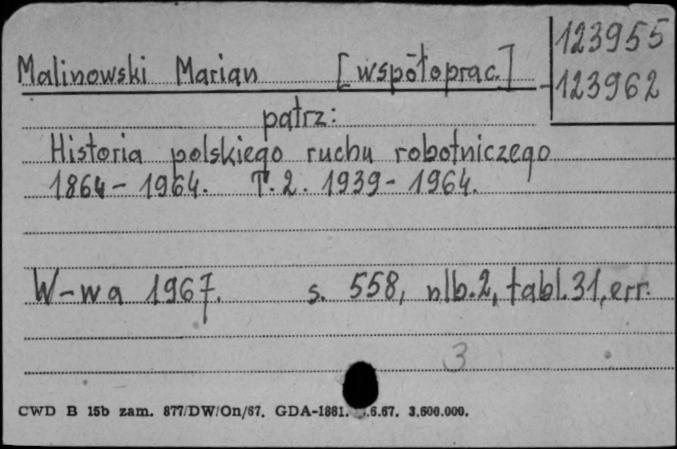 Malinowski Marian [współoprac.]
123955
-123962
patrz:
Historia polskiego ruchu robotniczego
1864 - 1964. T. 2. 1939 - 1964.
W-wa 1967. s. 558, nlb. 2, tabl. 31, err.
3
CWD B 15b zam. 877/DW/On/67. GDA-1881. .6.67. 3.600.000.